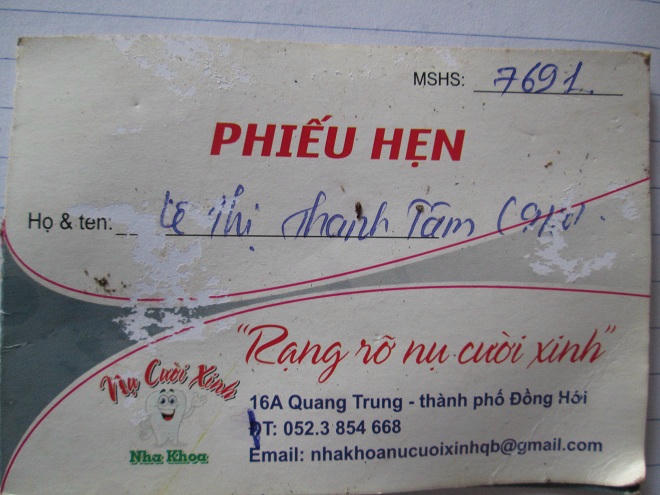 MSHS: 7691.
PHIẾU HẸN
Họ & ten: Lê Thị Thanh Tâm
"Rạng rỡ nụ cười xinh"
Nụ Cười Xinh
Nha Khoa
16A Quang Trung - thành phố Đồng Hới
ĐT: 052.3 854 668
Email: nhakhoanucuoixinhqb@gmail.com